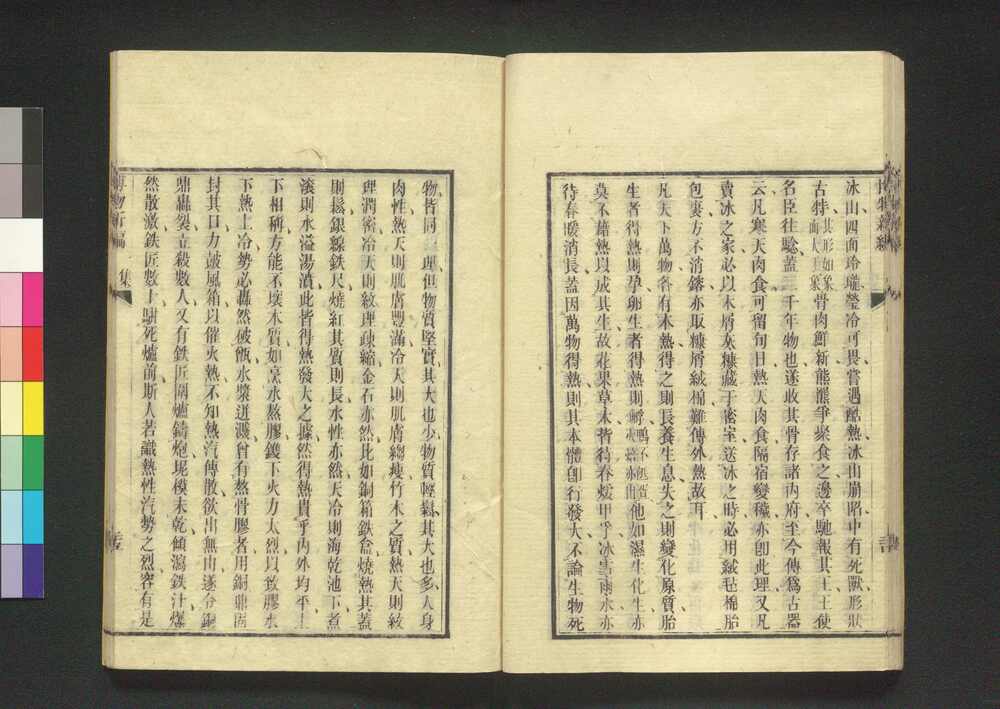 冰山四面玲瓏瑩冷可畏嘗遇酷熱冰山崩陷中有死獸形狀
古特其形如象而大于象骨肉鮮新熊羆爭聚食之邊卒馳報其王王使
名臣往驗蓋三千年物也遂收其骨存諸內府至今傳為古器
云凡寒天肉食可留旬日熱天肉食隔宿變穢亦卽此理又凡
賣冰之家必以木屑米糠藏于密室送冰之時必用絨毡棉胎
包裹方不消鎔亦取糠屑絨棉難傳外熱故耳
凡天下萬物各有本熱得之則長養生息失之則變化原質胎
生者得熱則孕卵生者得熱則孵他如濕生化生亦
莫不藉熱以成其生故花果草木皆待春煖甲孚冰雪雨水亦
待春暖消長蓋因萬物得熱則其本體卽行發大不論生物死
物皆同一理但物質堅實其大也少物質輕鬆其大也多人身
肉性熱天則肌膚豐滿冷天則肌膚縐瘦竹木之質熱天則紋
理潤密冷天則紋理疎縮金石亦然比如銅箱鉄盒燒熱其蓋
則鬆銀線鉄尺燒紅其質則長水性亦然天冷則海乾池下煮
滾則水溢湯濆此皆得熱發大之據然得熱貴乎內外均平上
下相稱方能不壞本質如烹水熬膠鑊下火力太烈以致膠水
下熱上冷勢必轟然破甑水漿迸濺曾有熬骨膠者用銅鼎固
封其口力鼓風箱以催火熱不知熱汽傳散欲出無由遂令銅
鼎轟裂立殺數人又有鉄匠開爐鑄炮坭模未乾傾瀉鉄汁爆
然散激鉄匠數十騈死爐前斯人若識熱性汽勢之烈容有是
博物新編 一集